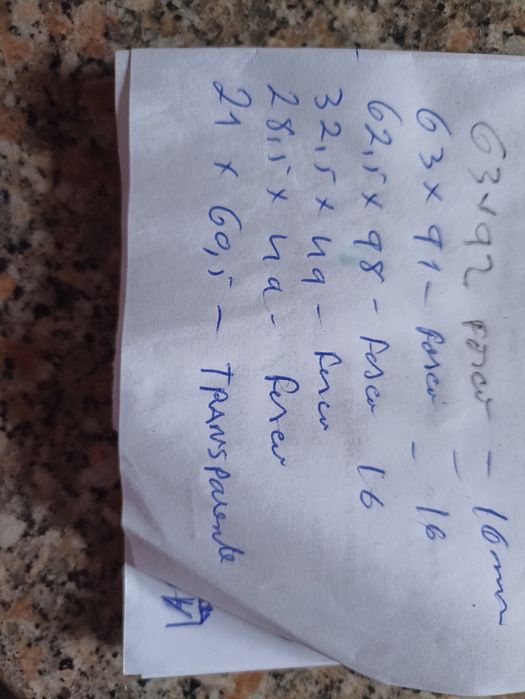 63 x 92 fosco = 16mm
63 x 91 - fosco - 16
62,5 x 98 - fosco 16
32,5 x 49 - fosco
28,5 x 49 - fosco
21 x 60,5 - TRANSParente